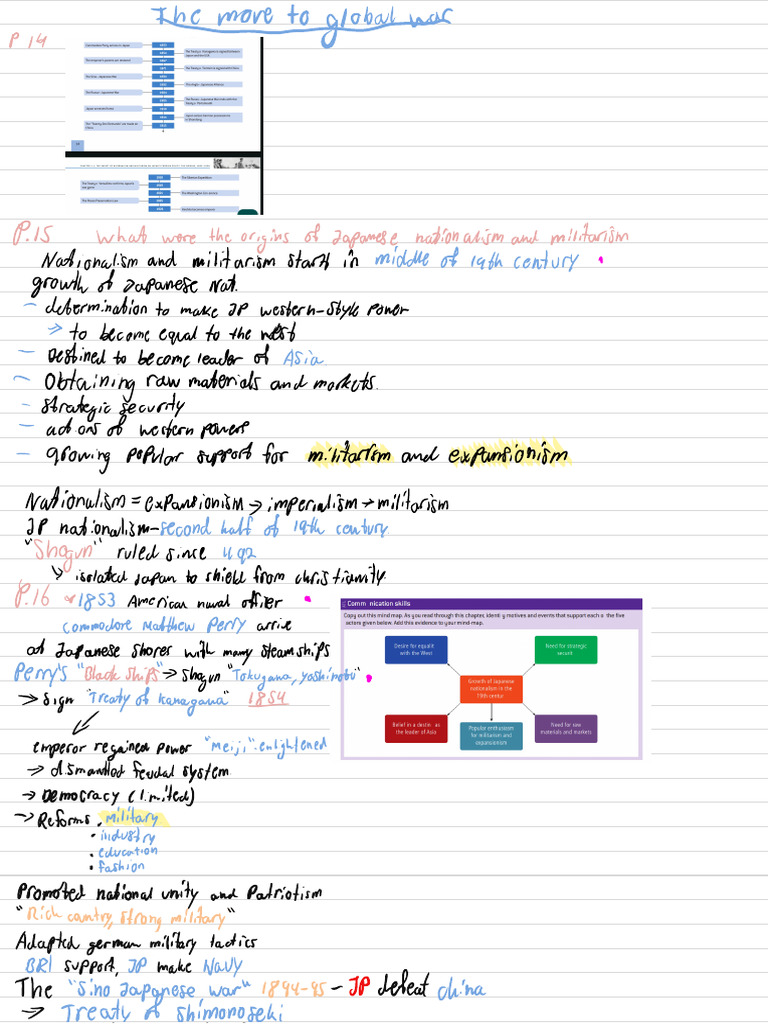 The move to global war
P 14
P.15 What were the origins of Japanese nationalism and militarism
Nationalism and militarism starts in middle of 19th century
growth of Japanese Nat.
- determination to make JP western-style power
⇒ to become equal to the west
- Destined to become leader of Asia
- Obtaining raw materials and markets.
- strategic security
- actions of western powers
- growing popular support for militarism and expansionism
Nationalism = expansionism → imperialism → militarism
JP nationalism - second half of 19th century
"Shogun" ruled since 1192
↳ isolated Japan to shield from christianity.
P.16 1853 American naval officer
Commodore Matthew Perry arrive
at Japanese shores with many steamships
Perry's "Black ships" → Shogun "Tokugawa, yoshinobu"
→ Sign "Treaty of Kanagawa" 1854
emperor regained power "Meiji": enlightened
→ dismantled feudal system
→ Democracy (limited)
→ Reforms • military
• industry
• education
• fashion
Comm nication skills
Copy out this mind map. As you read through this chapter, identi y motives and events that support each o the five
actors given below. Add this evidence to your mind-map.
Desire for equalit
with the West
Need for strategic
securit
Growth of Japanese
nationalism in the
19th centur
Belief in a destin as
the leader of Asia
Popular enthusiasm
for militarism and
expansionism
Need for raw
materials and markets
Promoted national unity and Patriotism
"Rich country, strong military"
Adapted german military tactics
BRI support, JP make Navy
The "Sino Japanese war" 1894-95 - JP defeat china
→ Treaty of Shimonoseki